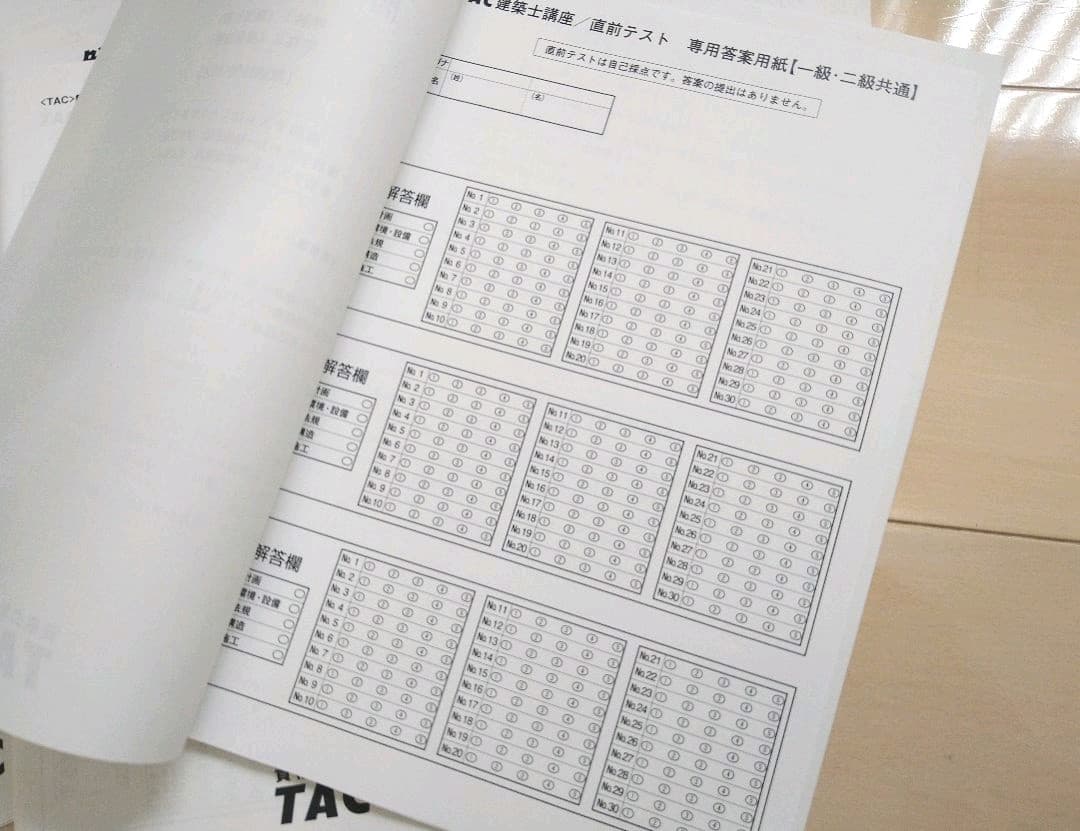 建築士講座／直前テスト 専用答案用紙【一級・二級共通】
直前テストは自己採点です。答案の提出はありません。
<TAC>
名 (姓) (名)
解答欄
計画
環境・設備
法規
構造
施工
No. 1 ① ② ③ ④ ⑤
No. 2 ① ② ③ ④ ⑤
No. 3 ① ② ③ ④ ⑤
No. 4 ① ② ③ ④ ⑤
No. 5 ① ② ③ ④ ⑤
No. 6 ① ② ③ ④ ⑤
No. 7 ① ② ③ ④ ⑤
No. 8 ① ② ③ ④ ⑤
No. 9 ① ② ③ ④ ⑤
No.10 ① ② ③ ④ ⑤
No.11 ① ② ③ ④ ⑤
No.12 ① ② ③ ④ ⑤
No.13 ① ② ③ ④ ⑤
No.14 ① ② ③ ④ ⑤
No.15 ① ② ③ ④ ⑤
No.16 ① ② ③ ④ ⑤
No.17 ① ② ③ ④ ⑤
No.18 ① ② ③ ④ ⑤
No.19 ① ② ③ ④ ⑤
No.20 ① ② ③ ④ ⑤
No.21 ① ② ③ ④ ⑤
No.22 ① ② ③ ④ ⑤
No.23 ① ② ③ ④ ⑤
No.24 ① ② ③ ④ ⑤
No.25 ① ② ③ ④ ⑤
No.26 ① ② ③ ④ ⑤
No.27 ① ② ③ ④ ⑤
No.28 ① ② ③ ④ ⑤
No.29 ① ② ③ ④ ⑤
No.30 ① ② ③ ④ ⑤
解答欄
計画
環境・設備
法規
構造
施工
No. 1 ① ② ③ ④ ⑤
No. 2 ① ② ③ ④ ⑤
No. 3 ① ② ③ ④ ⑤
No. 4 ① ② ③ ④ ⑤
No. 5 ① ② ③ ④ ⑤
No. 6 ① ② ③ ④ ⑤
No. 7 ① ② ③ ④ ⑤
No. 8 ① ② ③ ④ ⑤
No. 9 ① ② ③ ④ ⑤
No.10 ① ② ③ ④ ⑤
No.11 ① ② ③ ④ ⑤
No.12 ① ② ③ ④ ⑤
No.13 ① ② ③ ④ ⑤
No.14 ① ② ③ ④ ⑤
No.15 ① ② ③ ④ ⑤
No.16 ① ② ③ ④ ⑤
No.17 ① ② ③ ④ ⑤
No.18 ① ② ③ ④ ⑤
No.19 ① ② ③ ④ ⑤
No.20 ① ② ③ ④ ⑤
No.21 ① ② ③ ④ ⑤
No.22 ① ② ③ ④ ⑤
No.23 ① ② ③ ④ ⑤
No.24 ① ② ③ ④ ⑤
No.25 ① ② ③ ④ ⑤
No.26 ① ② ③ ④ ⑤
No.27 ① ② ③ ④ ⑤
No.28 ① ② ③ ④ ⑤
No.29 ① ② ③ ④ ⑤
No.30 ① ② ③ ④ ⑤
解答欄
計画
環境・設備
法規
構造
施工
No. 1 ① ② ③ ④ ⑤
No. 2 ① ② ③ ④ ⑤
No. 3 ① ② ③ ④ ⑤
No. 4 ① ② ③ ④ ⑤
No. 5 ① ② ③ ④ ⑤
No. 6 ① ② ③ ④ ⑤
No. 7 ① ② ③ ④ ⑤
No. 8 ① ② ③ ④ ⑤
No. 9 ① ② ③ ④ ⑤
No.10 ① ② ③ ④ ⑤
No.11 ① ② ③ ④ ⑤
No.12 ① ② ③ ④ ⑤
No.13 ① ② ③ ④ ⑤
No.14 ① ② ③ ④ ⑤
No.15 ① ② ③ ④ ⑤
No.16 ① ② ③ ④ ⑤
No.17 ① ② ③ ④ ⑤
No.18 ① ② ③ ④ ⑤
No.19 ① ② ③ ④ ⑤
No.20 ① ② ③ ④ ⑤
No.21 ① ② ③ ④ ⑤
No.22 ① ② ③ ④ ⑤
No.23 ① ② ③ ④ ⑤
No.24 ① ② ③ ④ ⑤
No.25 ① ② ③ ④ ⑤
No.26 ① ② ③ ④ ⑤
No.27 ① ② ③ ④ ⑤
No.28 ① ② ③ ④ ⑤
No.29 ① ② ③ ④ ⑤
No.30 ① ② ③ ④ ⑤
TAC